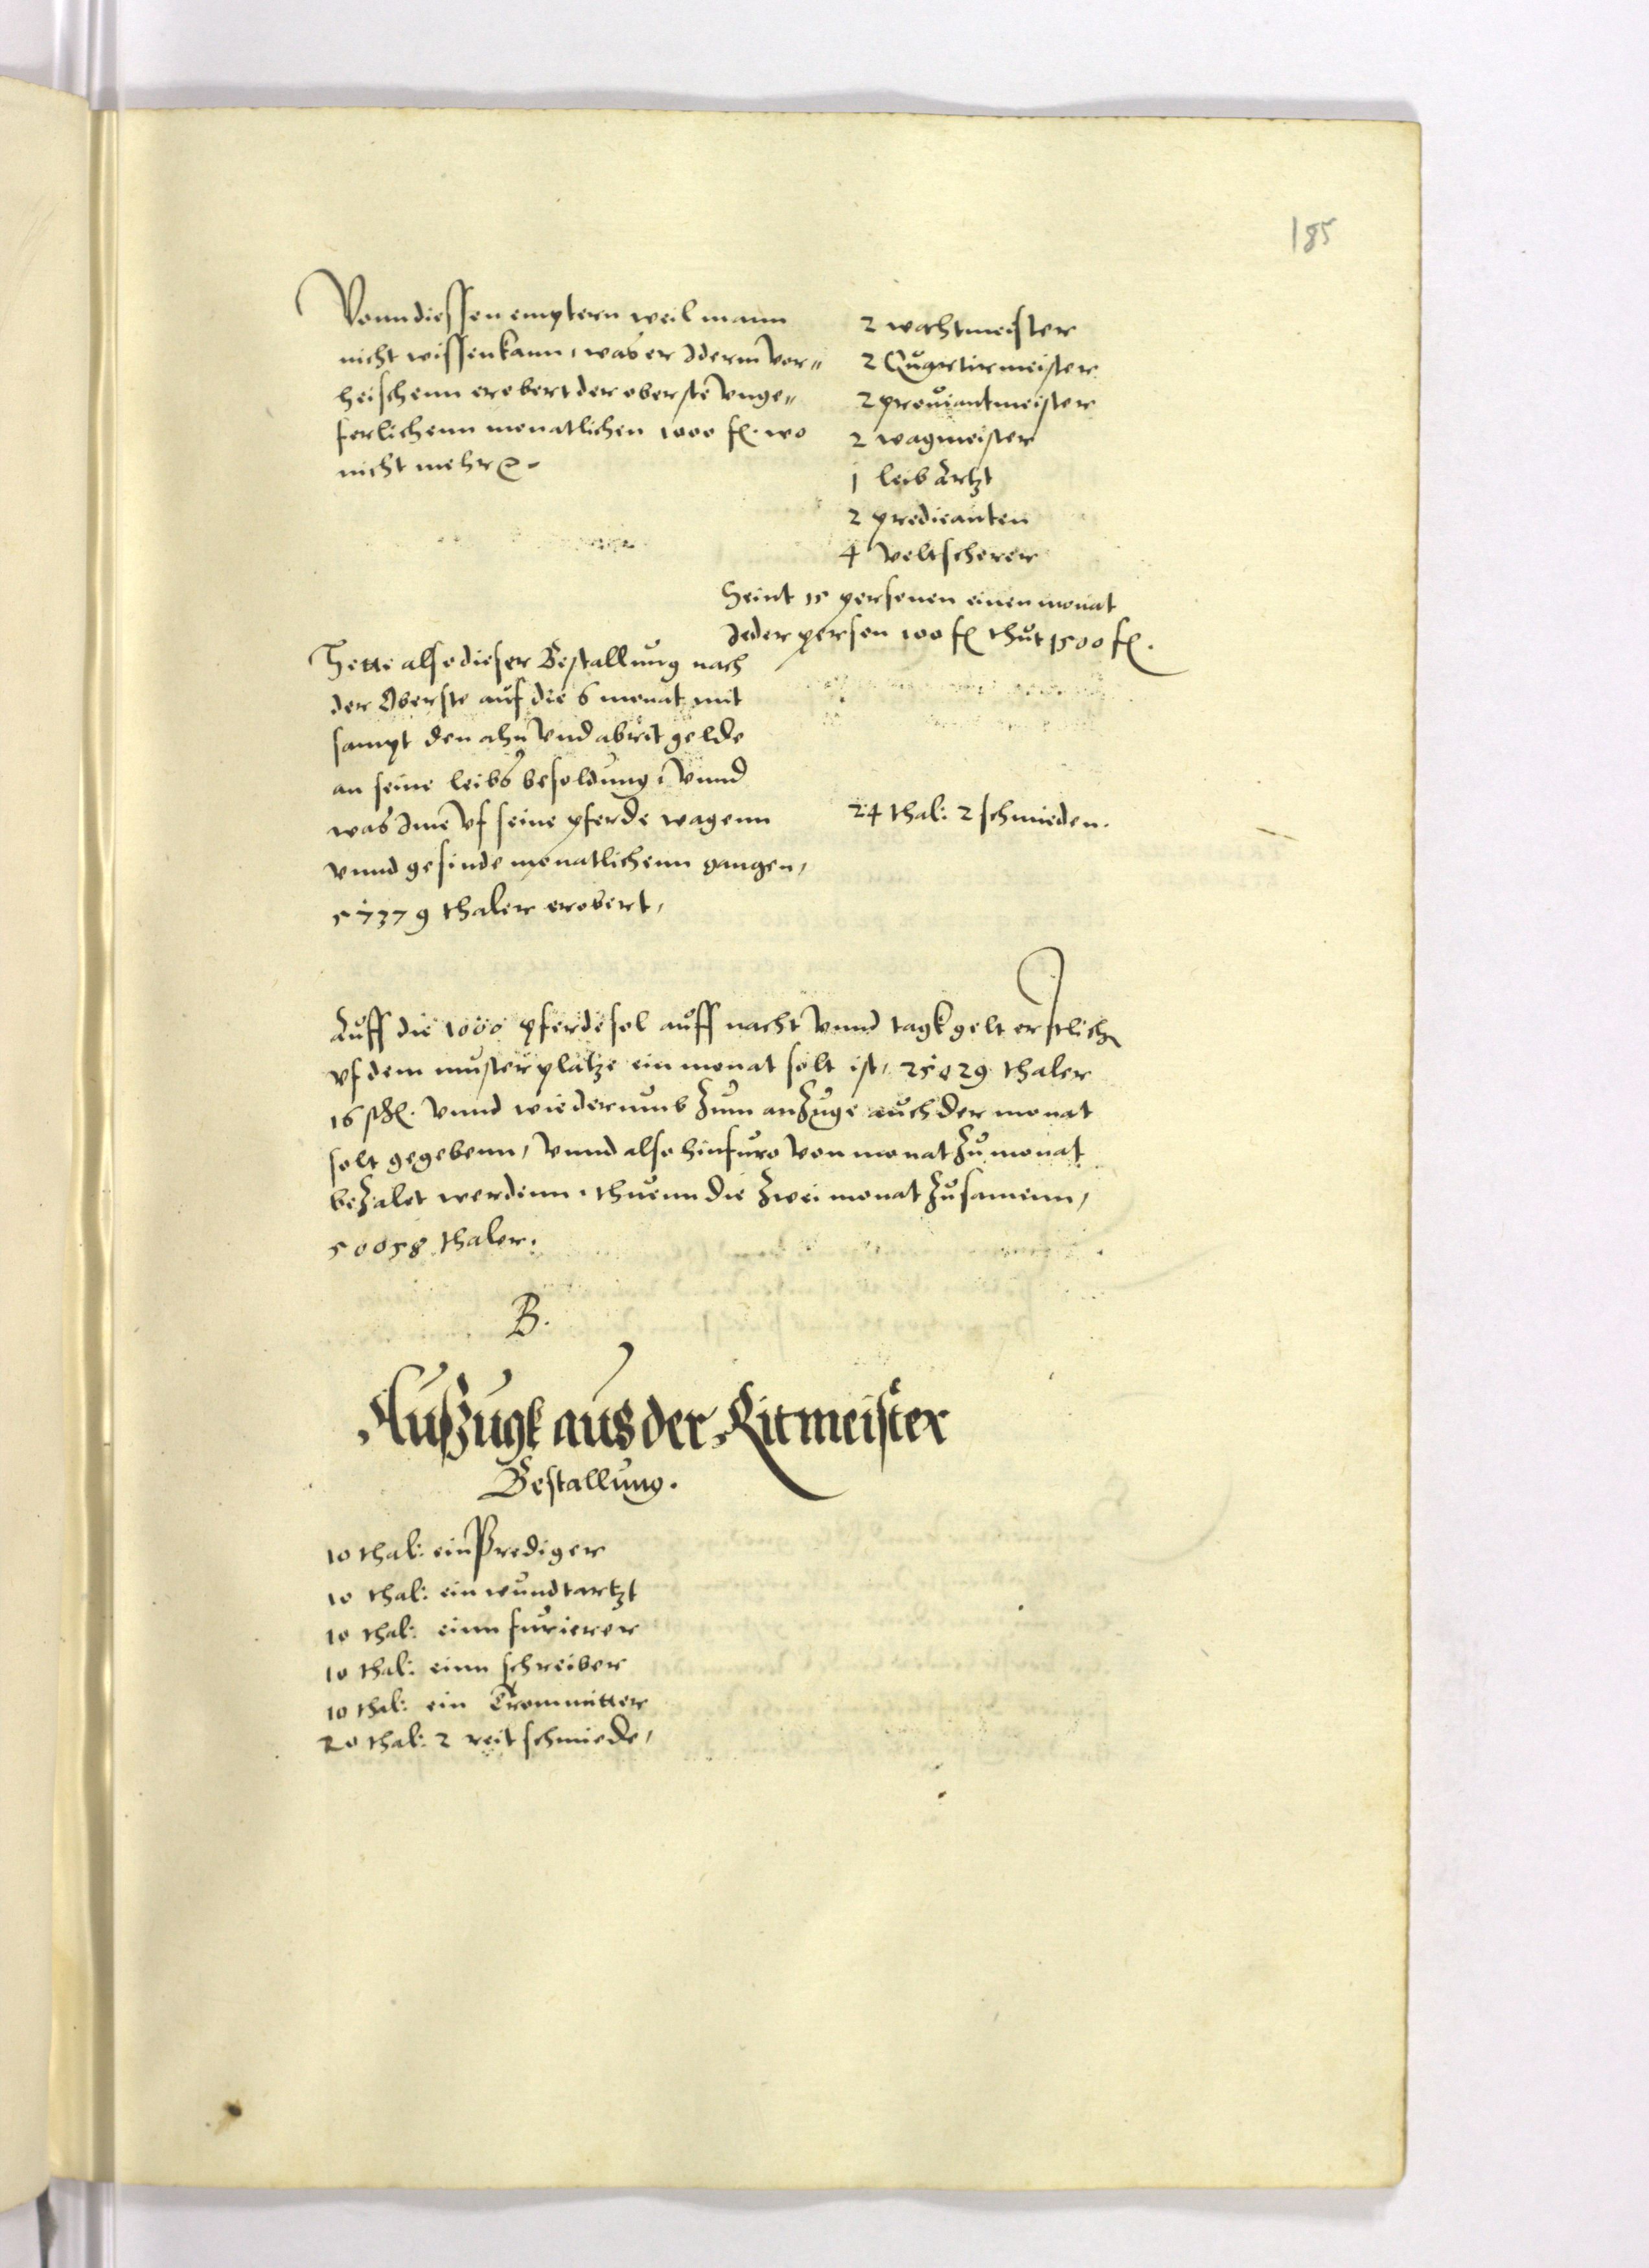 185
Vonn diessen emptern weil mann
nicht wissen kann, was er Iderm vor¬
heischenn erobert der oberste vnge¬
ferlichenn monatlichen 1000 fl. wo
nicht mehr
2 wachtmeister
2 Quartirmeister
2 prouiantmeister
2 wagmeister
1 leib Artzt
2 predicanten
4 veltscherer
Seint 15 personen einen monat
Jeder person 100 fl thut 1500 fl.
Hette also dieser Bestallung nach
der Oberste auf die 6 monat mit
sampt den ahn vnd abrit gelde
an seine leibs besoldung, vnnd
was Ime vf seine pferde wagenn
vnnd gesinde monatlichenn gangen,
57379 thaler erobert,
24 thal: 2 schmieden.
Auff die 1000 pferde sol auff nacht vnnd tagk gelt erstlich
vf dem musterplatze ein monat solt ist, 25029 thaler
16 ßl. vnnd wiederumb zum anzuge auch der monat
solt gegebenn, vnnd also hinfuro von monat zu monat
bezalet werdenn, thuenn die zwei monat zusamenn,
50058 thaler.
B.
Außzugk aus der Ritmeister
Bestallung.
10 thal: ein Prediger
10 thal: ein wundtartzt
10 thal: einn furierer
10 thal: einn schreiber
10 thal: ein Trommitter
20 thal: 2 reit schmiede,